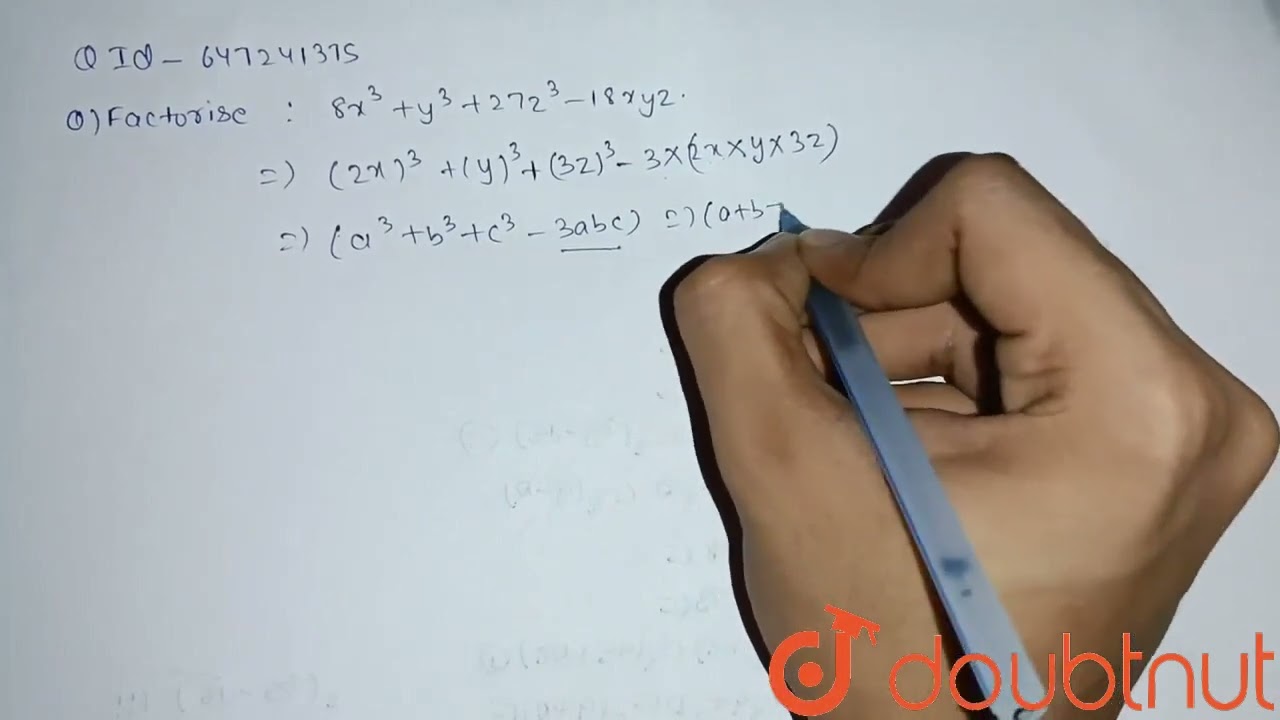 Q Id - 647241375
Q) Factorise : 8x³ + y³ + 27z³ - 18xyz.
=) (2x)³ + (y)³ + (3z)³ - 3×(2x×y×3z)
=) (a³ + b³ + c³ - 3abc) =) (a+b
doubtnut